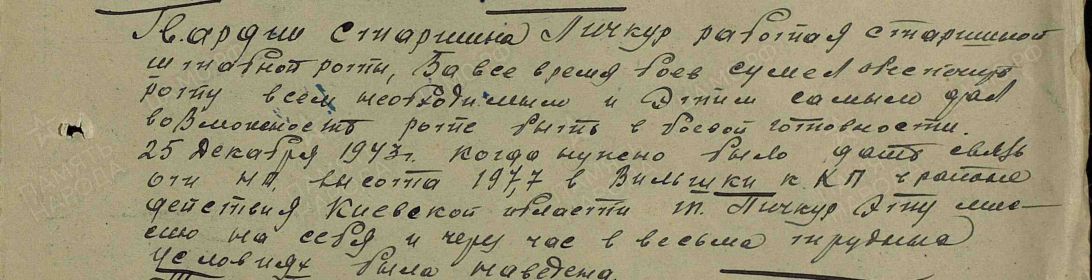 Гвардии старшина Пичкур работая старшиной
штабной роты, За все время боев сумел обеспечить
роту всем необходимым и Этим самым дал
возможность роте быть в боевой готовности.
25 декабря 1943г. когда нужно было дать связь
от НП. высота 197,7 в Вильшки к КП в районе
действия Киевской области т. Пичкур Эту мис-
сию на себя и через час в весьма трудных
условиях была наведена.